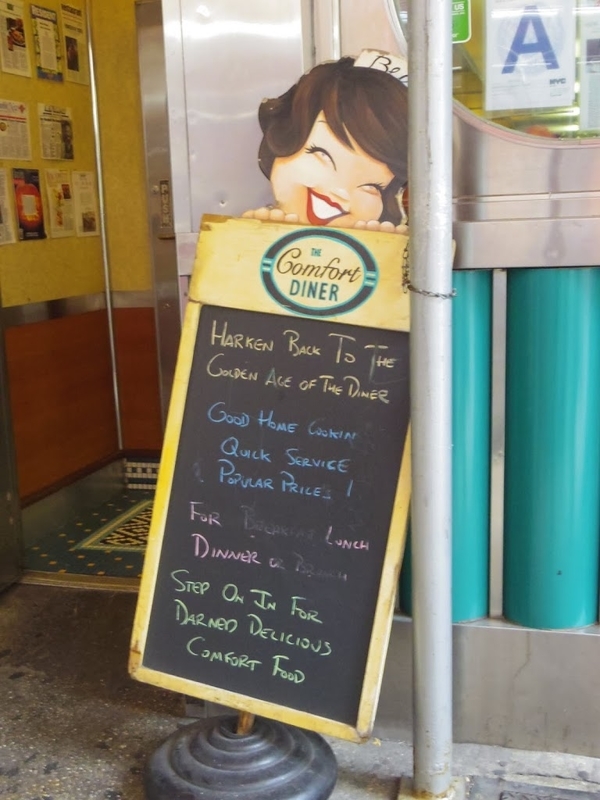 Be
US
A
NYC
THE
Comfort
DINER
HARKEN BACK TO THE
GOLDEN AGE OF THE DINER
GOOD HOME COOKIN
QUICK SERVICE
POPULAR PRICES !
FOR BREAKFAST LUNCH
DINNER OR BRUNCH
STEP ON IN FOR
DARNED DELICIOUS
COMFORT FOOD
PUSH